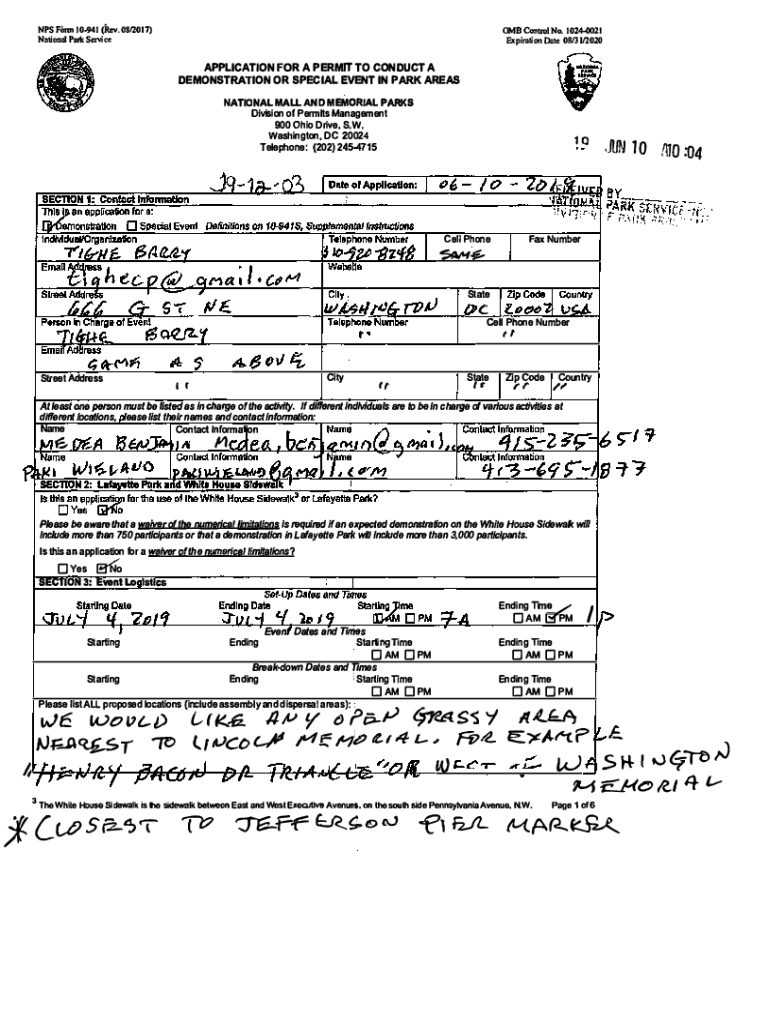 NPS Form 10-941 (Rev. 08/2017)
National Park Service
OMB Control No. 1024-0021
Expiration Date 08/31/2020
APPLICATION FOR A PERMIT TO CONDUCT A
DEMONSTRATION OR SPECIAL EVENT IN PARK AREAS
NATIONAL MALL AND MEMORIAL PARKS
Division of Permits Management
900 Ohio Drive, S.W.
Washington, DC 20024
Telephone: (202) 245-4715
19 JUN 10 A10:04
19-12-03 Date of Application: 06-10-2019
RECEIVED BY
NATIONAL PARK SERVICE
SECTION 1: Contact Information
This is an application for a:
Demonstration Special Event Definitions on 10-941S, Supplemental Instructions
Individual/Organization Telephone Number Cell Phone Fax Number
TIGHE BARRY 310-920-8248 SAME
Email Address Website
tighecp@gmail.com
Street Address City State Zip Code Country
666 G ST NE WASHINGTON DC 20002 USA
Person in Charge of Event Telephone Number Cell Phone Number
TIGHE BARRY " "
Email Address
SAME AS ABOVE
Street Address City State Zip Code Country
" " " " "
At least one person must be listed as in charge of the activity. If different individuals are to be in charge of various activities at
different locations, please list their names and contact information:
Name Contact Information Name Contact Information
MEDEA BENJAMIN Medea.benjamin@gmail.com 415-235-6517
Name Contact Information Name Contact Information
PAKI WIELAND PAKIWIELAND@gmail.com 413-695-1877
SECTION 2: Lafayette Park and White House Sidewalk
Is this an application for the use of the White House Sidewalk3 or Lafayette Park?
Yes No
Please be aware that a waiver of the numerical limitations is required if an expected demonstration on the White House Sidewalk will
include more than 750 participants or that a demonstration in Lafayette Park will include more than 3,000 participants.
Is this an application for a waiver of the numerical limitations?
Yes No
SECTION 3: Event Logistics
Set-Up Dates and Times
Starting Date Ending Date Starting Time Ending Time
JULY 4, 2019 JULY 4, 2019 AM PM 7A AM PM 1P
Event Dates and Times
Starting Ending Starting Time Ending Time
AM PM AM PM
Break-down Dates and Times
Starting Ending Starting Time Ending Time
AM PM AM PM
Please list ALL proposed locations (include assembly and dispersal areas):
WE WOULD LIKE ANY OPEN GRASSY AREA
NEAREST TO LINCOLN MEMORIAL. FOR EXAMPLE
"HENRY BACON DR TRIANGLE" OR WEST OF WASHINGTON
MEMORIAL
3 The White House Sidewalk is the sidewalk between East and West Executive Avenues, on the south side Pennsylvania Avenue, N.W. Page 1 of 6
* CLOSEST TO JEFFERSON PIER MARKER